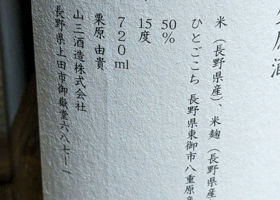 原酒
米（長野県産）、米麹（長野県産
ひとごこち 長野県東御市八重原産
50%
15度
720ml
栗原 由貴
山三酒造株式会社
長野県上田市御嶽堂六八七ー一